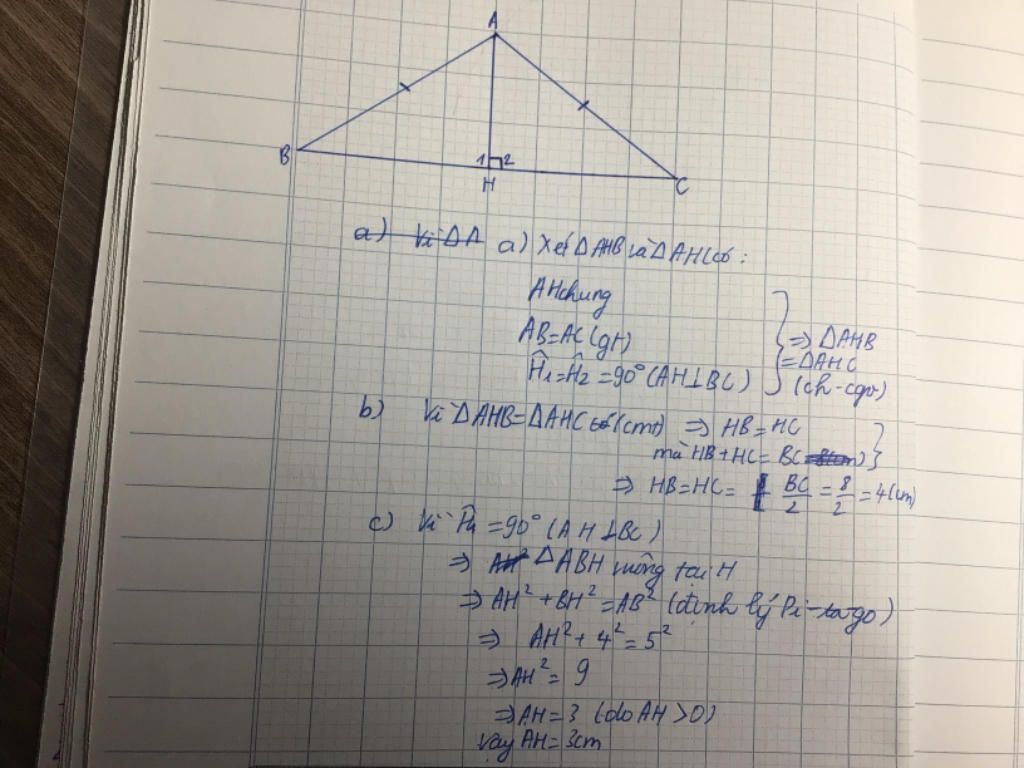 A
B
1 2
H
C
a) Vì ΔA a) Xét ΔAHB và ΔAHC có:
AH chung
AB=AC (gt)
Ĥ1=Ĥ2=90° (AH⊥BC)
⇒ ΔAHB
=ΔAHC
(ch-cgv)
b) Vì ΔAHB=ΔAHC (cmt) ⇒ HB=HC
mà HB+HC=BC
⇒ HB=HC= BC/2 = 8/2 = 4(cm)
c) Vì Ĥ1 =90° (AH⊥BC)
⇒ AH² ΔABH vuông tại H
⇒ AH² + BH² = AB² (định lý Pi-ta-go)
⇒ AH² + 4² = 5²
⇒ AH² = 9
⇒ AH = 3 (do AH > 0)
vậy AH = 3cm